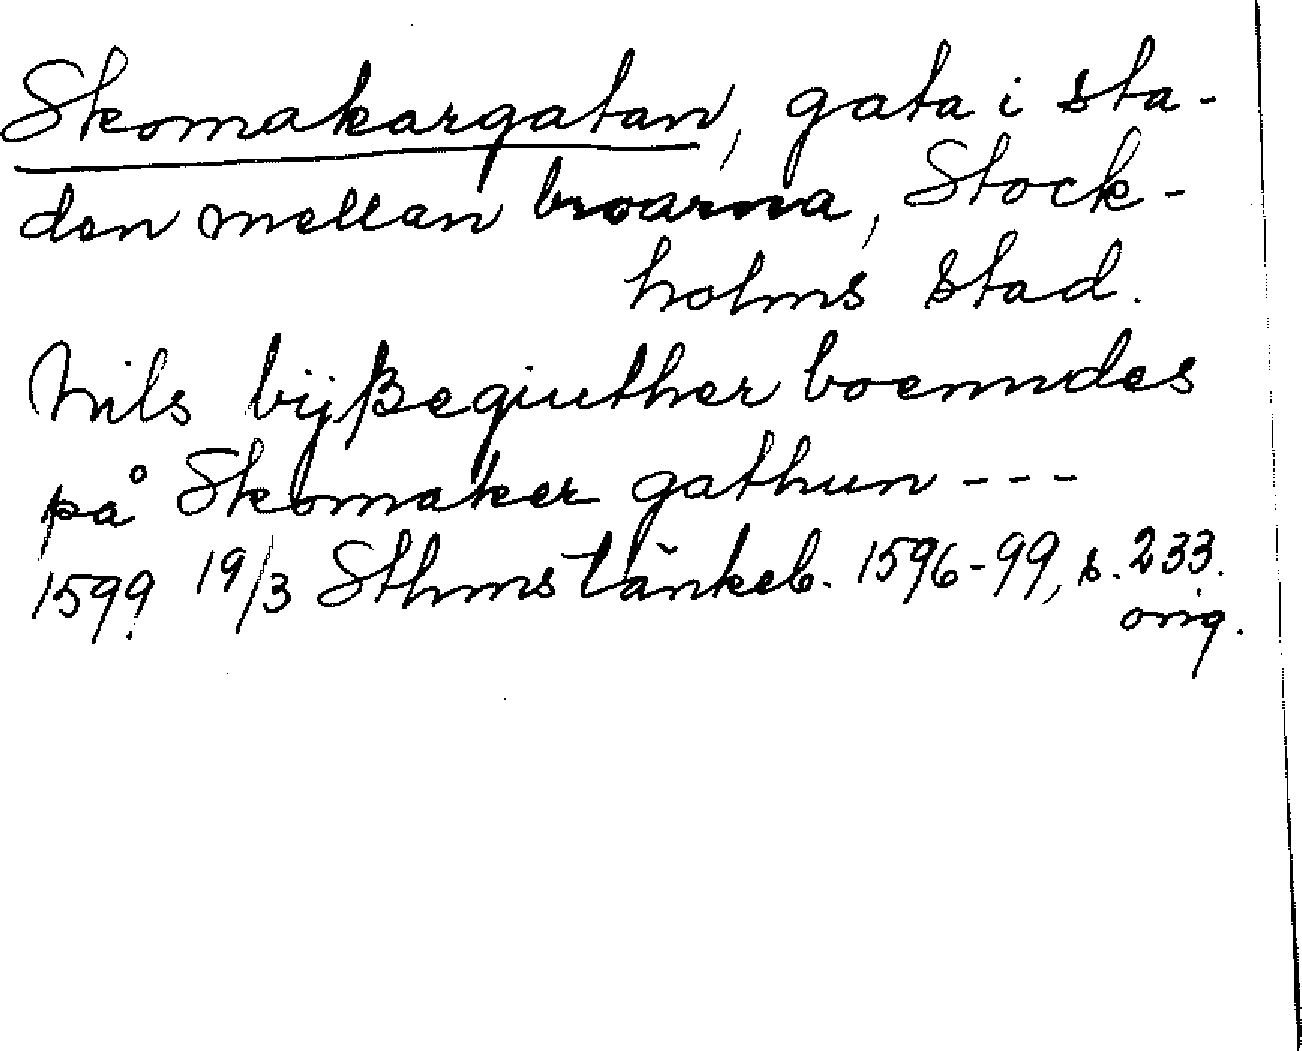 Skomakargatan, gata i sta-
den mellan broarna, Stock-
holms stad.
Nils bijßegiuther boenndes
på Skomaker gathun ---
1599 19/3 Sthms tänkeb. 1596-99, s. 233.
orig.